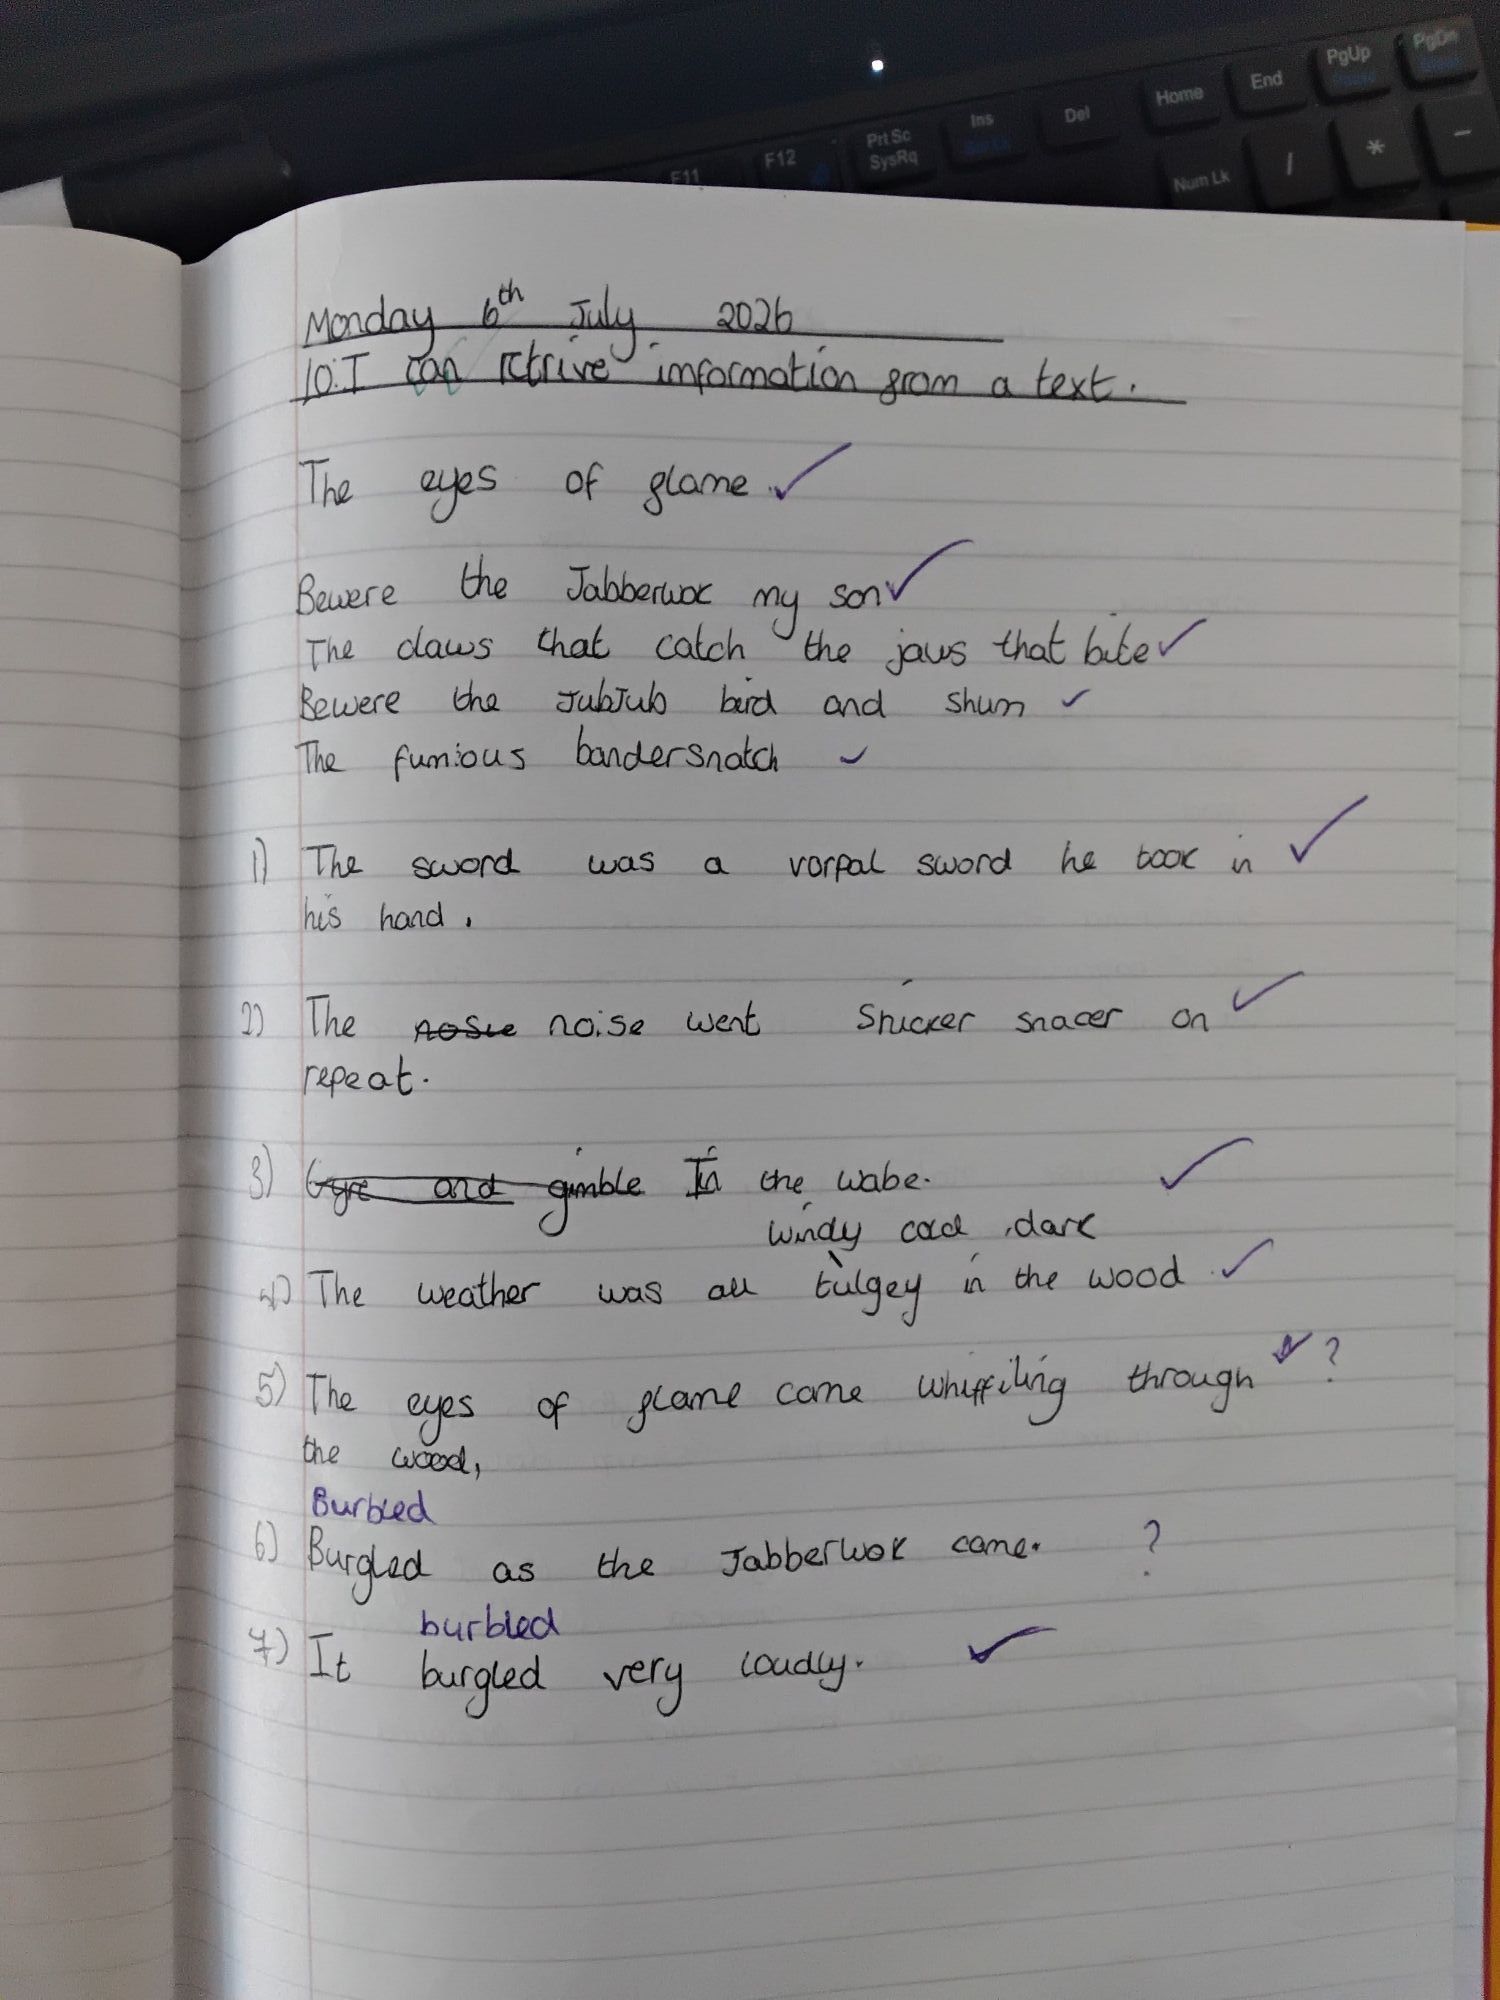 PgUp
PgDn
Home
End
Ins
Del
Prt Sc
SysRq
F12
F11
Num Lk
/
*
-
Monday 6th July 2026
LO: I can retrive information from a text.
The eyes of flame.
Bewere the Jabberwoc my son
The claws that catch the jaws that bite
Bewere the JubJub bird and shun
The fumious bandersnatch
1) The sword was a vorpal sword he took in
his hand.
2) The nosie noise went Snicker snacer on
repeat.
3) Gyre and gimble In the wabe.
windy cold, dark
4) The weather was all tulgey in the wood.
5) The eyes of flame came whiffiling through ?
the wood,
Burbled
6) Burgled as the Jabberwok came. ?
burbled
7) It burgled very loudly.